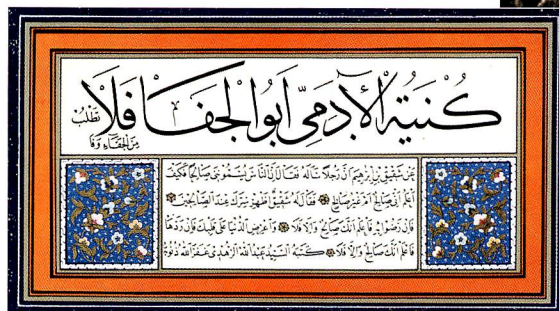 كُنيَةُ الآدَمِيّ اَبُو الجَفَا فَلَا تَطْلُبْ
مِنَ الجَفَاءِ وَفَا
عَنْ شَقِيقِ بْنِ اِبْرٰهِيمَ اَنَّ رَجُلًا سَأَلَهُ فَقَالَ اِنَّ النَّاسَ يُسَمُّونِي صَالِحًا فَكَيْفَ
اَعْلَمُ اَنِّي صَالِحٌ اَوْ غَيْرُ صَالِحٍ فَقَالَ لَهُ شَقِيقٌ اَظْهِرْ سِرَّكَ عِنْدَ الصَّالِحِينَ
فَاِنْ رَضُوا بِهِ فَاعْلَمْ اَنَّكَ صَالِحٌ وَاِلَّا فَلَا وَاعْرِضِ الدُّنْيَا عَلَى قَلْبِكَ فَاِنْ رَدَّهَا
فَاعْلَمْ اَنَّكَ صَالِحٌ وَاِلَّا فَلَا كَتَبَهُ السَّيِّدُ عَبْدُ اللهِ الزُّهْدِي غَفَرَ اللهُ ذُنُوبَهُ